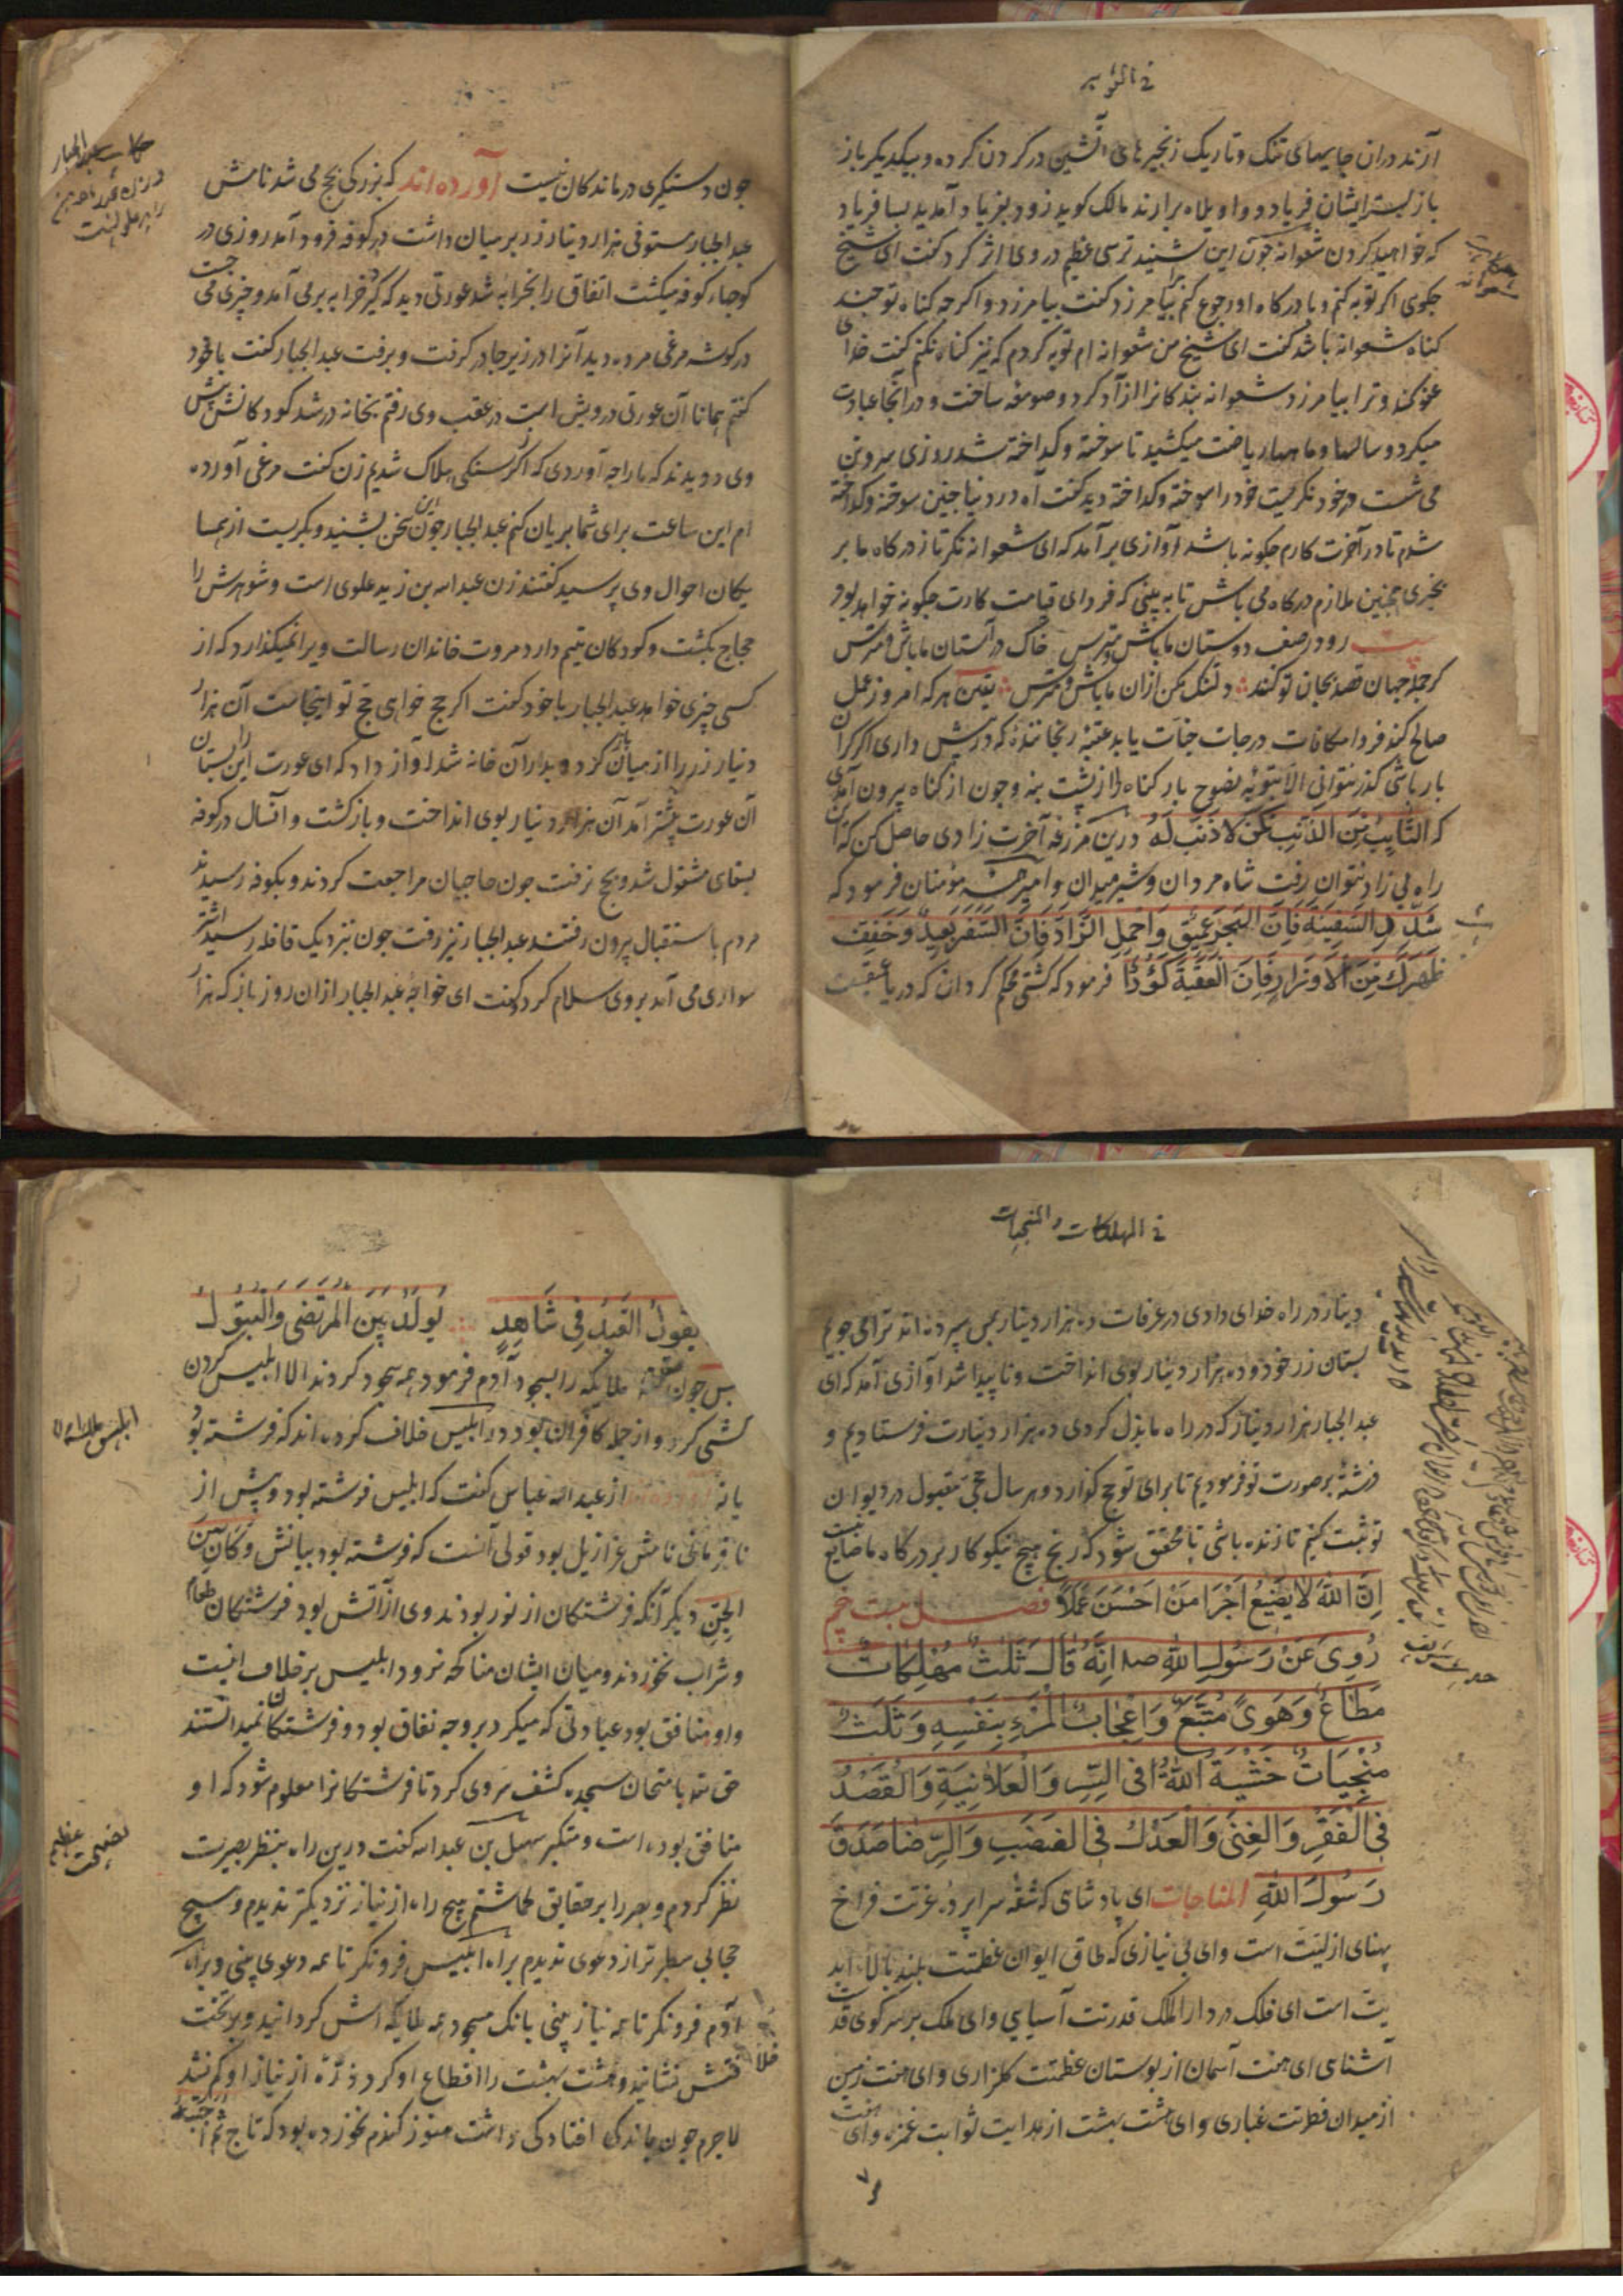 في التوبه
آرند دران جایهای تنک و تاریک زنجیرهای آتشین در کردن کرده و بیکدیکر باز
باز بسته ایشان فریاد و واویلاه برارند مالک کوید زود بفریاد آمدید بسا فریاد
که خواهید کردن شعوانه جون این بشنید ترسی عظیم در وی اثر کرد کفت ای شیخ
جکوی اکر توبه کنم و با درکاه او رجوع کنم مرا بیامرزد کفت بیامرزد و اکرجه کناه تو جند
کناه شعوانه باشد کفت ای شیخ من شعوانه ام توبه کردم که نیز کناه نکنم کفت خدای
عفو کند و ترا بیامرزد شعوانه بندکانرا آزاد کرد و صومعه ساخت و در آنجا عبادت
میکرد و سالها و ماهها ریاضت میکشید تا سوخته و کداخته شد روزی سر و تن
می شست در خود نکریست خود را سوخته و کداخته دید کفت آه در دنیا جنین سوخته و کداخته
شدم تا در آخرت کارم جکونه باشد آوازی برآمد که ای شعوانه نکر تا ز درکاه ما بر
نخیزی همجنین ملازم درکاه می باش تا به بینی که فردای قیامت کارت جکونه خواهد بود
بیت رو در صف دوستان ما باش و مترس خاک در آستان ما باش و مترس
کر جمله جهان قصد بجان تو کنند دلتنک مکن ازان ما باش و مترس یقین هر که امروز عمل
صالح کند فردا مکافات درجات جنات یابد عقبه رنجاننده که در پیش داری اکر کران
بار باشی کذر نتوانی الا بتوبه نصوح بار کناه را از پشت بنه و جون از کناه بیرون آمدی
که التَّایِبُ مِنَ الذَّنبِ کَمَن لا ذَنبَ لَهُ درین مزرعه آخرت زادی حاصل کن که آن
راه بی زاد نتوان رفت شاه مردان و شیر میدان و امیر مؤمنان فرمود که
شَدِّدِ السَّفِینَةَ فَاِنَّ البَحرَ عَمِیق وَاحمِلِ الزَّادَ فَاِنَّ السَّفَرَ بَعِیدٌ وَخَفِّف
ظَهرَكَ مِنَ الاَوزَارِ فَاِنَّ العَقَبَةَ کَؤُدٌ فرمود که کشتی محکم کردان که دریا عمیقست
جون دستکیری درماندکان نیست آورده اند که بزرکی بحج می شد نامش
عبد الجبار مستوفی هزار دینار زر بر میان داشت در کوفه فرود آمد روزی در
کوجهاء کوفه میکشت اتفاق را بخرابه شد عورتی دید که کرد خرابه بر می آمد و جیزی می جست
در کوشه مرغی مرده دید آنرا در زیر جادر کرفت و برفت عبد الجبار کفت با خود
کفتم همانا آن عورتی درویش است در عقب وی رفتم بخانه در شد کودکانش پیش
وی دویدند که ما را جه آوردی که از کرسنکی هلاک شدیم زن کفت مرغی آورده
ام این ساعت برای شما بریان کنم عبد الجبار جون این سخن بشنید و بکریست از همسا
یکان احوال وی پرسید کفتند زن عبد الله بن زید علوی است و شوهرش را
حجاج بکشت و کودکان یتیم دارد مروت خاندان رسالت ویرا نمیکذارد که از
کسی جیزی خواهد عبد الجبار با خود کفت اکر حج خواهی حج تو اینجاست آن هزار
دینار زر را از میان باز کرد و بدر آن خانه شد آواز داد که ای عورت این را بستان
آن عورت پیشتر آمد آن هزار دینار بوی انداخت و بازکشت و آنسال در کوفه
بسقای مشغول شد و بحج نرفت جون حاجیان مراجعت کردند و بکوفه رسیدند
مردم باستقبال بیرون رفتند عبد الجبار نیز رفت جون نزدیک قافله رسید اشتر
سواری می آمد بروی سلام کرد کفت ای خواجه عبد الجبار ازان روز باز که هزار
في المهلکات والمنجیات
دینار در راه خدای دادی در عرفات ده هزار دینار بمن سپرده اند ترا می جویم
بستان زر خود و ده هزار دینار بوی انداخت و ناپیدا شد آوازی آمد که ای
عبد الجبار هزار دینار که در راه ما بذل کردی ده هزار دینارت فرستادیم و
فرشته بر صورت تو فرمودیم تا برای تو حج کزارد و هر سال حجی مقبول در دیوان
تو ثبت کنیم تا زنده باشی تا محقق شود که رنج هیچ نیکوکار بر درکاه ما ضایع نیست
اِنَّ اللهَ لا یُضِیعُ اَجرَ مَن اَحسَنَ عَمَلاً فصل بیست و پنجم
رُوِیَ عَن رَسُولِ اللهِ صلعم اَنَّهُ قَالَ ثَلٰثٌ مُهلِکَاتٌ
مُطَاعٌ وَهَوًی مُتَّبَعٌ وَاِعجَابُ المَرءِ بِنَفسِهِ وَثَلٰثٌ
مُنجِیَاتٌ خَشیَةُ اللهِ فی السِّرِ وَالعَلَانِیَةِ وَالقَصدُ
فِی الفَقرِ وَالغِنٰی وَالعَدلُ فِی الغَضَبِ وَالرِّضَا صَدَقَ
رَسُولُ اللهِ المناجات ای پادشاهی که شقه سراپرده عزتت فراخ
پهنای ازلیت است و ای بی نیازی که طاق ایوان عظمتت بلند بالاء ابد
یت است ای فلک در دار الملک قدرتت آسیایی و ای ملک بر سر کوی
آشنای ای هفت آسمان از بوستان عظمتت کلزاری و ای هفت زمین
از میدان فطرتت غباری و ای هشت بهشت از هدایت ثوابت غمزه و ای هفت
یَقُولُ العَبدُ فِی شَاهِدٍ یُولَدُ بَینَ المُرتَضٰی وَالبَتُولِ
پس جون ملایکه را بسجود آدم فرمود همه سجود کردند الا ابلیس کردن
کشی کرد و از جمله کافران بود در ابلیس خلاف کرده اند که فرشته بود
یا نه از عبد الله عباس کفت که ابلیس فرشته بود و پیش از
نافرمانی نامش عزازیل بود قولی آنست که فرشته نبود ببیانش وَکَانَ مِنَ
الجِنِّ دیکر آنکه فرشتکان از نور بودند وی از آتش بود فرشتکان طعام
و شراب نخوردند و میان ایشان مناکحه نرود ابلیس برخلاف اینست
و او منافق بود عبادتی که میکرد بر وجه نفاق بود و فرشتکان نمیدانستند
حق تعالی بامتحان سجده کشف سر وی کرد تا فرشتکانرا معلوم شود که او
منافق بوده است و متکبر سهل بن عبد الله کفت درین راه بنظر بصیرت
نظر کردم و بصر را بر حقایق کماشتم هیچ راه از نیاز نزدیکتر ندیدم و هیچ
حجابی سطبرتر از دعوی ندیدم براه ابلیس فرو نکر تا همه دعوی بینی و براه
آدم فرو نکر تا همه نیاز بینی بانک سجود همه ملایکه اش کردانید و بر تخت
نشانید و هشت بهشت را اقطاع او کرد ذرّه از نیاز او کم نشد
لاجرم جون افتادکی داشت هنوز کندم نخورده بود که تاج
ابلیس علیه اللعنه
نصیحت عظیم